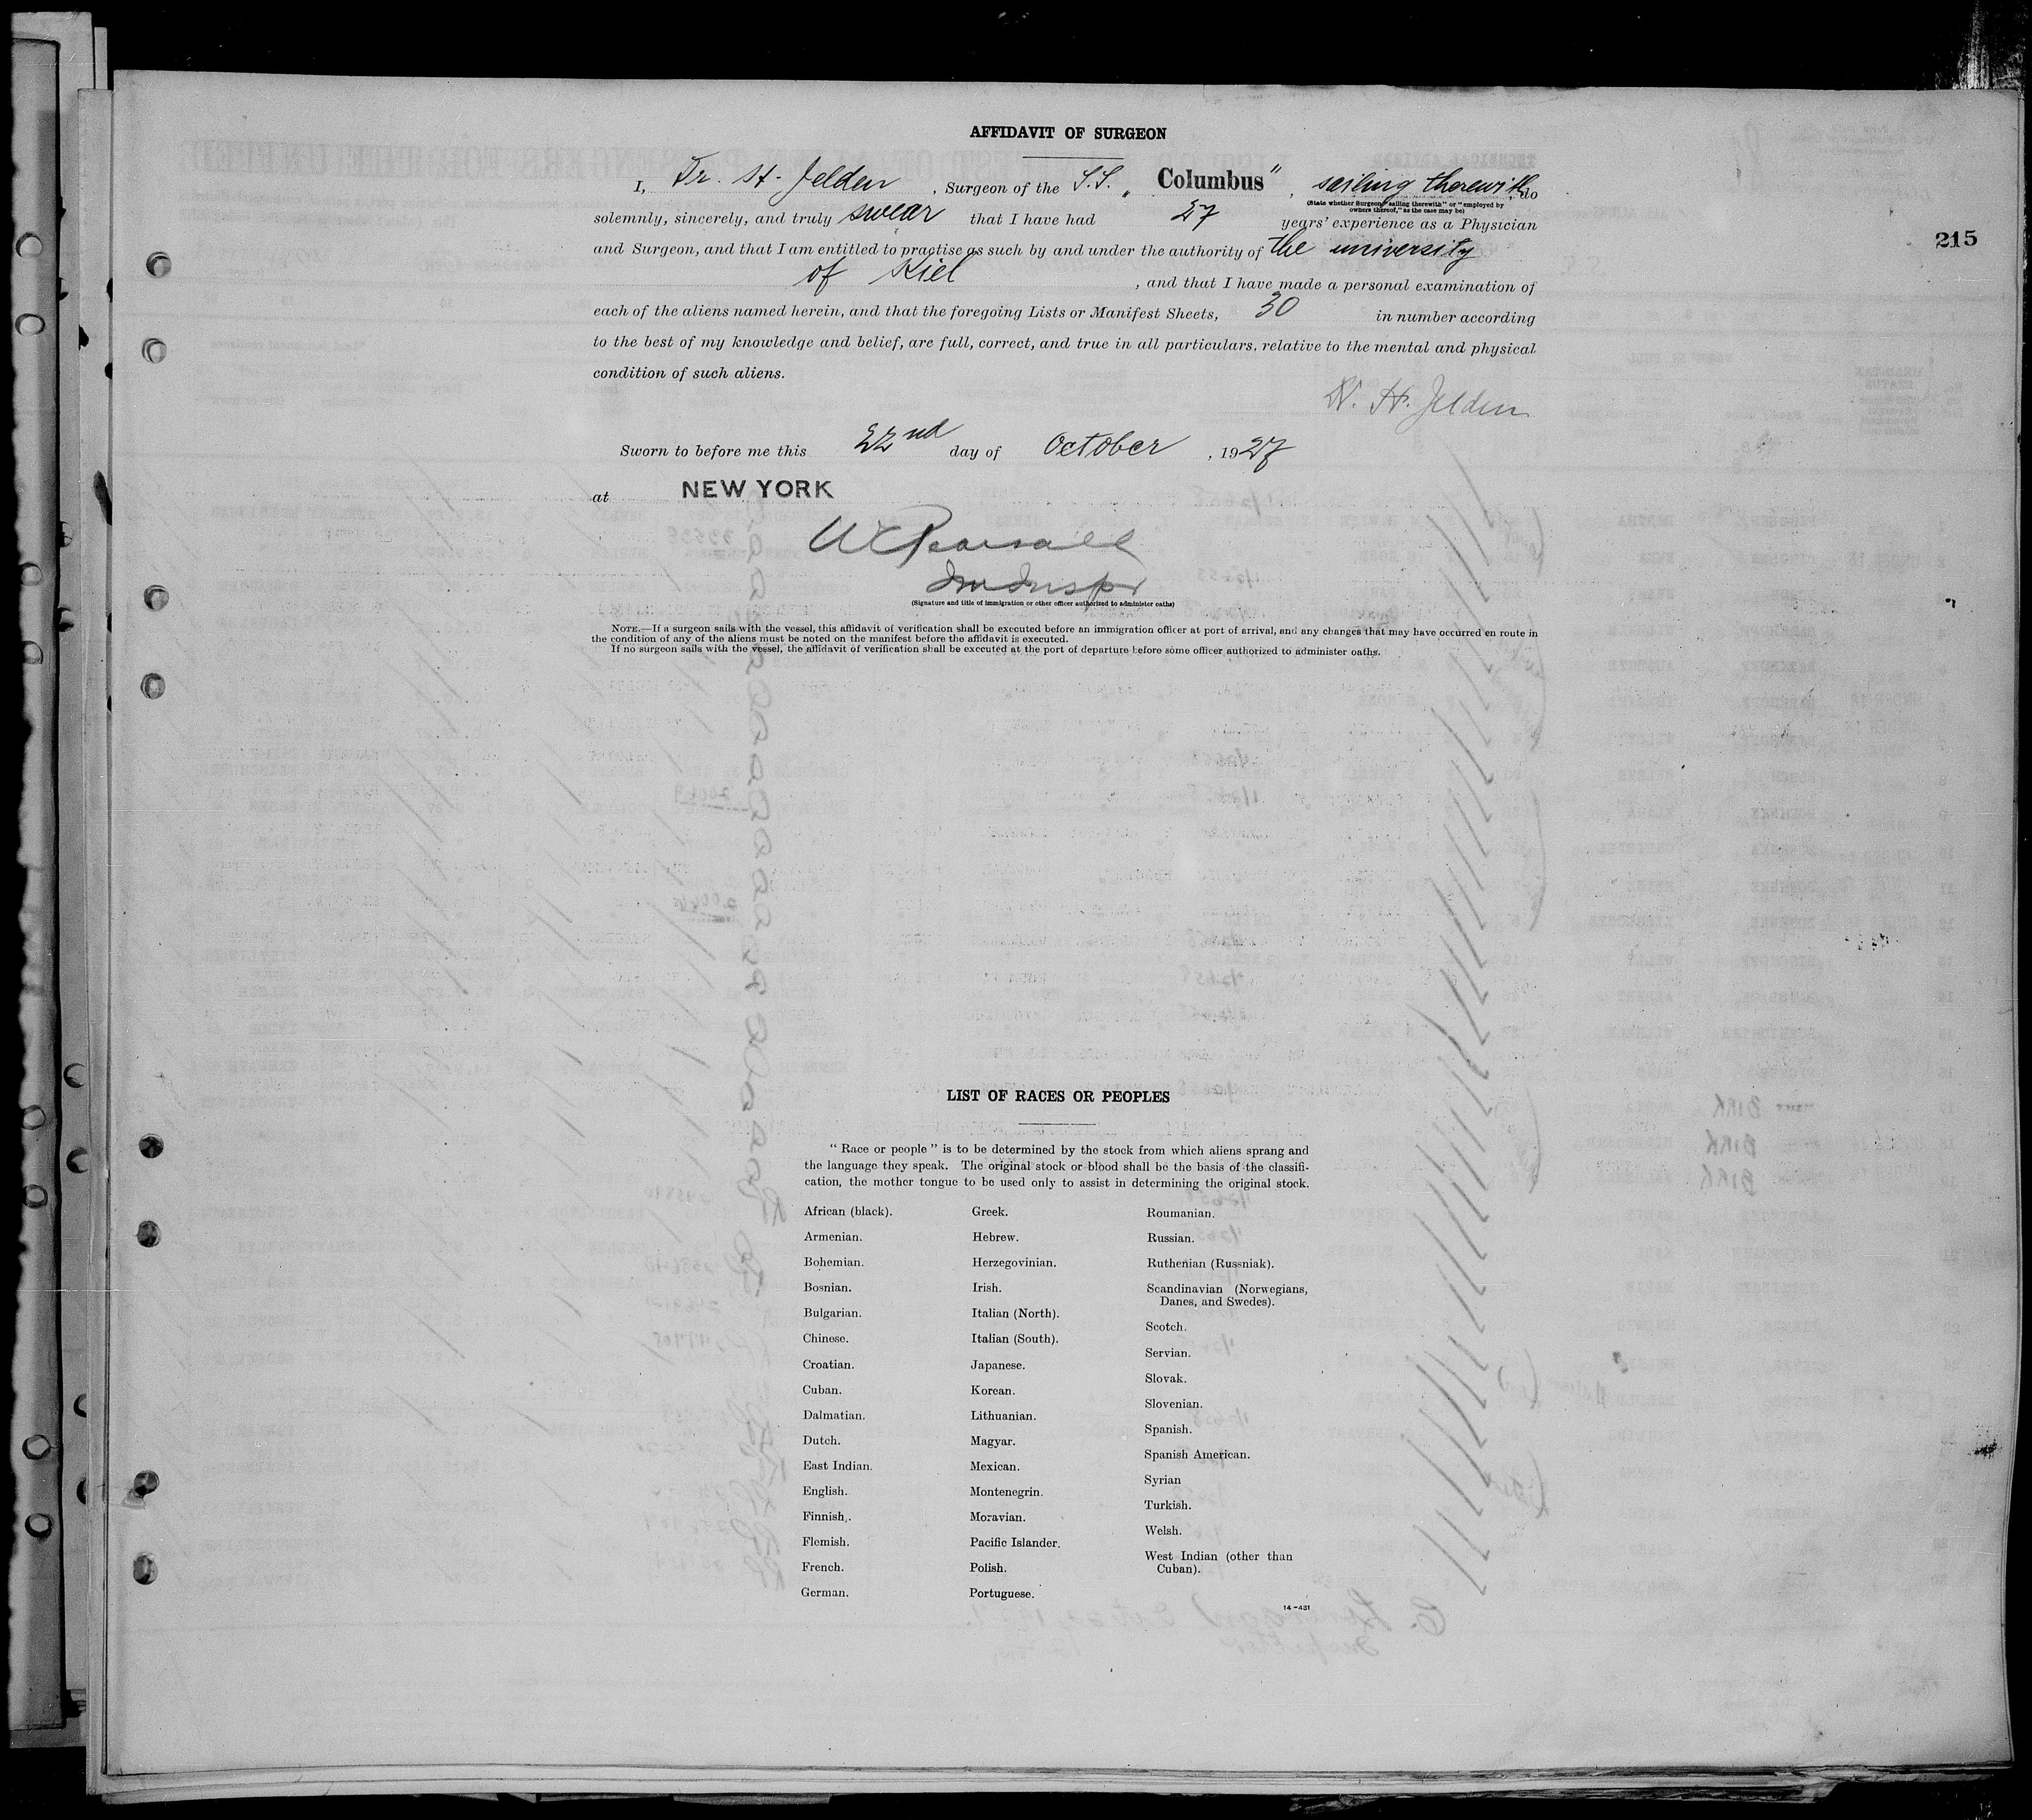 AFFIDAVIT OF SURGEON
I, Dr. H. Jelden, Surgeon of the S.S. „Columbus", sailing therewith, do
(State whether Surgeon "sailing therewith" or "employed by
owners thereof," as the case may be)
solemnly, sincerely, and truly swear that I have had 27 years' experience as a Physician
215
and Surgeon, and that I am entitled to practise as such by and under the authority of the university
of Kiel, and that I have made a personal examination of
each of the aliens named herein, and that the foregoing Lists or Manifest Sheets, 30 in number according
to the best of my knowledge and belief, are full, correct, and true in all particulars, relative to the mental and physical
condition of such aliens.
Dr. H. Jelden
Sworn to before me this 22nd day of October, 1927
at NEW YORK
W C Pearsall
Imm Inspr
(Signature and title of immigration or other officer authorized to administer oaths)
NOTE.—If a surgeon sails with the vessel, this affidavit of verification shall be executed before an immigration officer at port of arrival, and any changes that may have occurred en route in
the condition of any of the aliens must be noted on the manifest before the affidavit is executed.
If no surgeon sails with the vessel, the affidavit of verification shall be executed at the port of departure before some officer authorized to administer oaths.
LIST OF RACES OR PEOPLES
"Race or people" is to be determined by the stock from which aliens sprang and
the language they speak. The original stock or blood shall be the basis of the classifi-
cation, the mother tongue to be used only to assist in determining the original stock.
African (black).
Armenian.
Bohemian.
Bosnian.
Bulgarian.
Chinese.
Croatian.
Cuban.
Dalmatian.
Dutch.
East Indian.
English.
Finnish.
Flemish.
French.
German.
Greek.
Hebrew.
Herzegovinian.
Irish.
Italian (North).
Italian (South).
Japanese.
Korean.
Lithuanian.
Magyar.
Mexican.
Montenegrin.
Moravian.
Pacific Islander.
Polish.
Portuguese.
Roumanian.
Russian.
Ruthenian (Russniak).
Scandinavian (Norwegians,
Danes, and Swedes).
Scotch.
Servian.
Slovak.
Slovenian.
Spanish.
Spanish American.
Syrian
Turkish.
Welsh.
West Indian (other than
Cuban).
14-431